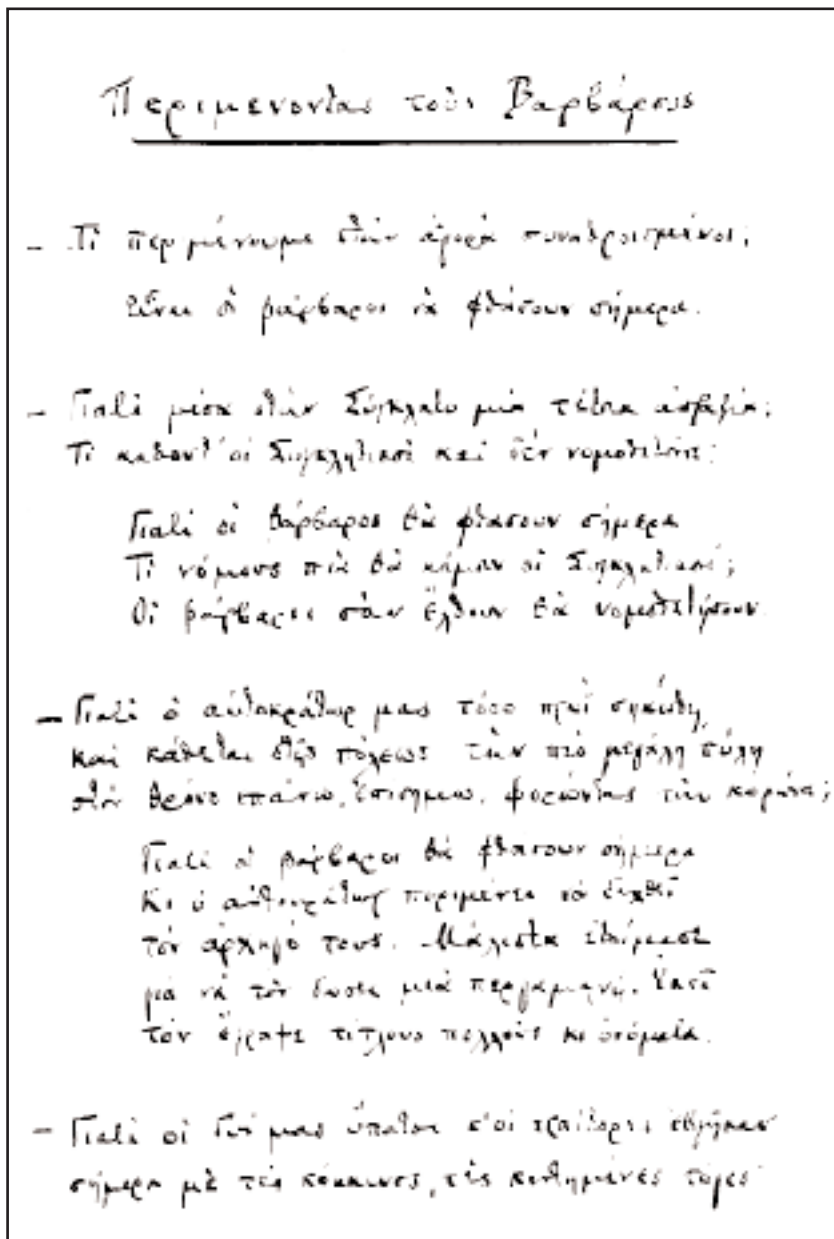 Περιμένοντας τους Βαρβάρους
– Τί περιμένουμε στὴν ἀγορὰ συναθροισμένοι;
Εἶναι οἱ βάρβαροι νὰ φθάσουν σήμερα.
– Γιατί μέσα στὴν Σύγκλητο μιὰ τέτοια ἀπραξία;
Τί κάθοντ' οἱ Συγκλητικοὶ καὶ δὲν νομοθετοῦνε;
Γιατί οἱ βάρβαροι θὰ φθάσουν σήμερα
Τί νόμους πιὰ θὰ κάμουν οἱ Συγκλητικοί;
Οἱ βάρβαροι σὰν ἔλθουν θὰ νομοθετήσουν
– Γιατί ὁ αὐτοκράτωρ μας τόσο πρωῒ σηκώθη,
καὶ κάθεται στῆς πόλεως τὴν πιὸ μεγάλη πύλη
στὸν θρόνο ἐπάνω, ἐπίσημος, φορώντας τὴν κορώνα;
Γιατί οἱ βάρβαροι θὰ φθάσουν σήμερα
Κι ὁ αὐτοκράτωρ περιμένει νὰ δεχθεῖ
τὸν ἀρχηγό τους. Μάλιστα ἑτοίμασε
γιὰ νὰ τὸν δώσει μιὰ περγαμηνή. Ἐκεῖ
τὸν ἔγραψε τίτλους πολλοὺς κι ὀνόματα.
– Γιατί οἱ δυό μας ὕπατοι κ' οἱ πραίτορες ἐβγῆκαν
σήμερα μὲ τὲς κόκκινες, τὲς κεντημένες τόγες